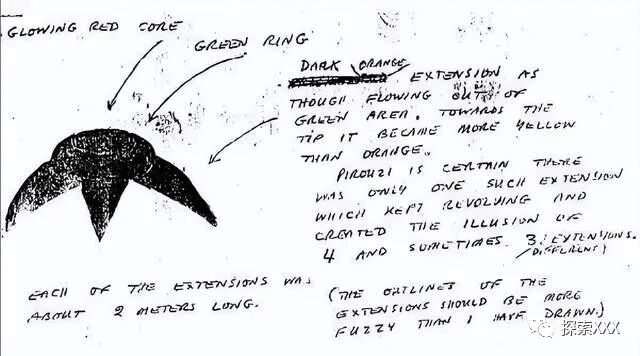 GLOWING RED CORE
GREEN RING
DARK ORANGE
EXTENSION AS
THOUGH FLOWING OUT OF
GREEN AREA. TOWARDS THE
TIP IT BECAME MORE YELLOW
THAN ORANGE.
PIROUZI IS CERTAIN THERE
WAS ONLY ONE SUCH EXTENSION
WHICH KEPT REVOLVING AND
CREATED THE ILLUSION OF
4 AND SOMETIMES 3 EXTENSIONS.
(DIFFERENT)
EACH OF THE EXTENSIONS WAS
ABOUT 2 METERS LONG.
(THE OUTLINES OF THE
EXTENSIONS SHOULD BE MORE
FUZZY THAN I HAVE DRAWN.)
探索XXX